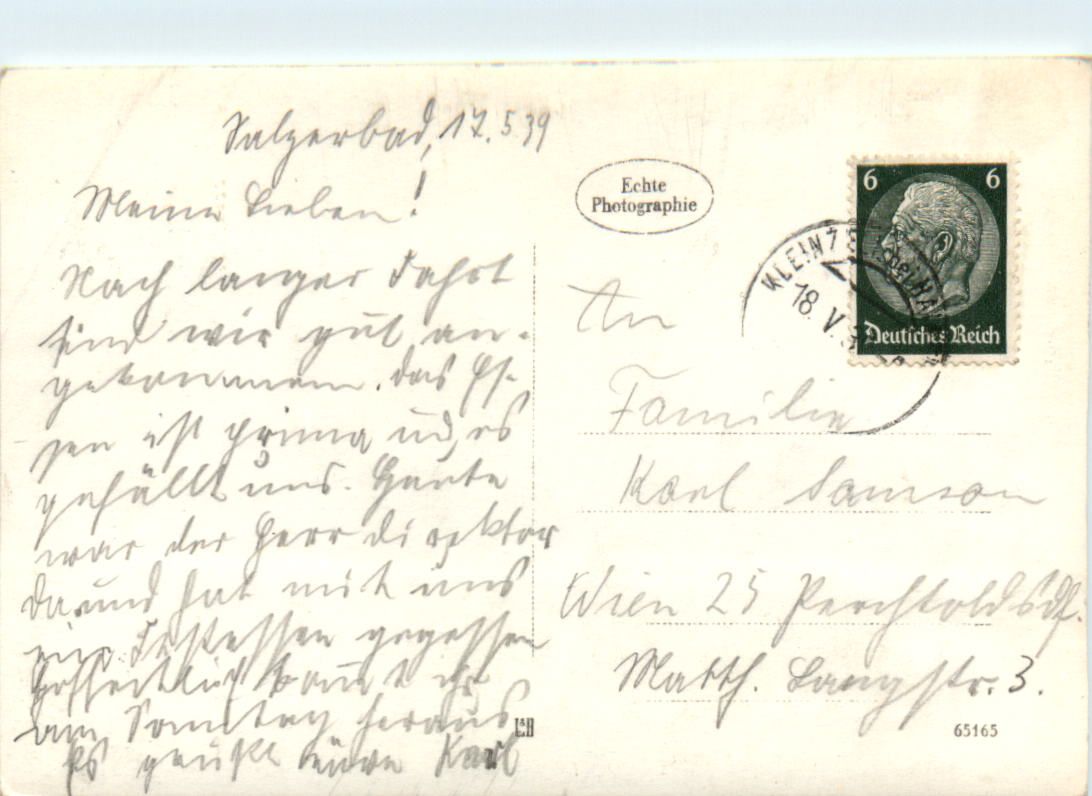 Salzerbad, 17.5.39
Meine Lieben!
Nach langer Fahrt
sind wir gut an-
gekommen. Das Es-
sen ist prima und es
gefällt uns. Heute
war der Herr Direktor
da und hat mit uns
ein Festessen gegessen
Hoffentlich kommt ihr
am Sonntag heraus
Es grüßt euch Karl
Echte
Photographie
6 6
Deutsches Reich
KLEINZELL
18. V.
An
Familie
Karl Samson
Wien 25 Perchtoldsdf.
Matth. Langstr. 3.
65165